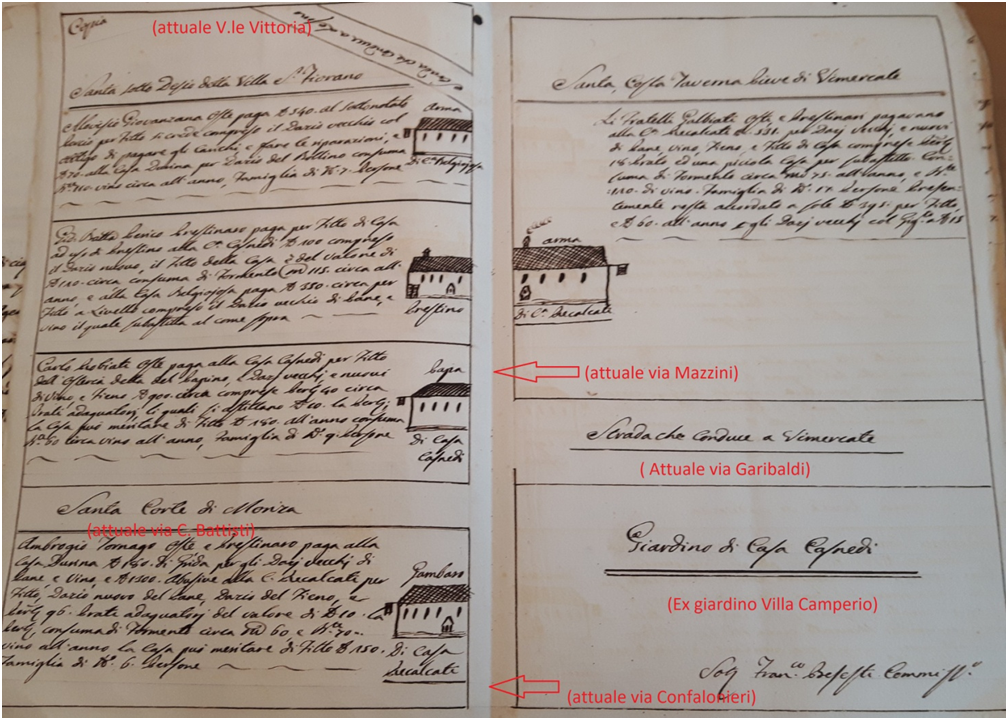 Copia
(attuale V.le Vittoria)
Strada che conduce a
Santa sotto Desio della Villa e S. Fiorano
Aloisio Giovanzana Oste paga £ 340. al sottonotato
Dazio per Fitto si crede compreso il Dazio vecchio col
obligo di pagare gli Carichi, e fare le riparazioni, e
£ 70. alla Casa Durina per Dazio del Bollino consuma
vino circa all'anno, Famiglia di N. 7. Persone
arma
di C. Belgiojosa
Gio. Batta Prestinaro paga per Fitto di Casa
ad uso di Prestino alla C. Casnedi £ 100 compreso
il Dazio nuovo, il Fitto della Casa è del valore di
£ 120. circa consuma di Formento M 115. circa all'
anno, e alla Casa Belgiojosa paga £ 350. circa per
Fitto a Livello compreso il Dazio vecchio di Pane, e
vino il quale subaffitta al come sopra
Prestino
Carlo Oste paga alla Casa Casnedi per Fitto
dell'Osteria detta del Capino, e Dazj vecchj e nuovi
di vino, e Fieno £ 900. circa comprese Pert. 40 circa
Prati adaquatorj, li quali si affittano £ 10. la Pert.
la Casa può meritare di Fitto £ 180. all'anno consuma
60 circa vino all'anno, Famiglia di N. 9. Persone
Capa
di Casa
Casnedi
Santa Corte di Monza
(attuale via C. Battisti)
Ambrogio Tornago Oste e Prestinaro paga alla
Casa Durina £ 180. di Grida per gli Dazj vecchj di
Pane e Vino, e £ 1300. abusive alla C. Secalcati per
Fitto, Dazio nuovo del Pane, Dazio del Fieno, e
Pert. 96. Prati adaquatorj del valore di £ 10. la
Pert., consuma di Formento circa M 60 e 70.
vino all'anno la Casa può meritare di Fitto £ 150.
Famiglia di N. 6. Persone
Gambaro
Di Casa
Secalcati
Santa, Costa Taverna Pieve di Vimercate
Li Fratelli Galbiati Osti e Prestinari pagavano
alla C. Secalcati £ 531. per Dazj Vecchj, e nuovi
di Pane vino, Fieno, e Fitto di Casa comprese Pert.
18 Prato ed una picciola Casa per subaffitto Con-
suma di Formento circa M 75. all'anno, e
110. di vino. Famiglia di N. 17. Persone Presen-
temente resta accordato a sole £ 395. per Fitto
e £ 60. all'anno e gli Dazj vecchj col
arma
Di C. Secalcati
(attuale via Mazzini)
Strada che conduce a Vimercate
( Attuale via Garibaldi)
Giardino di Casa Casnedi
(Ex giardino Villa Camperio)
Fran.co Commiss.o
(attuale via Confalonieri)